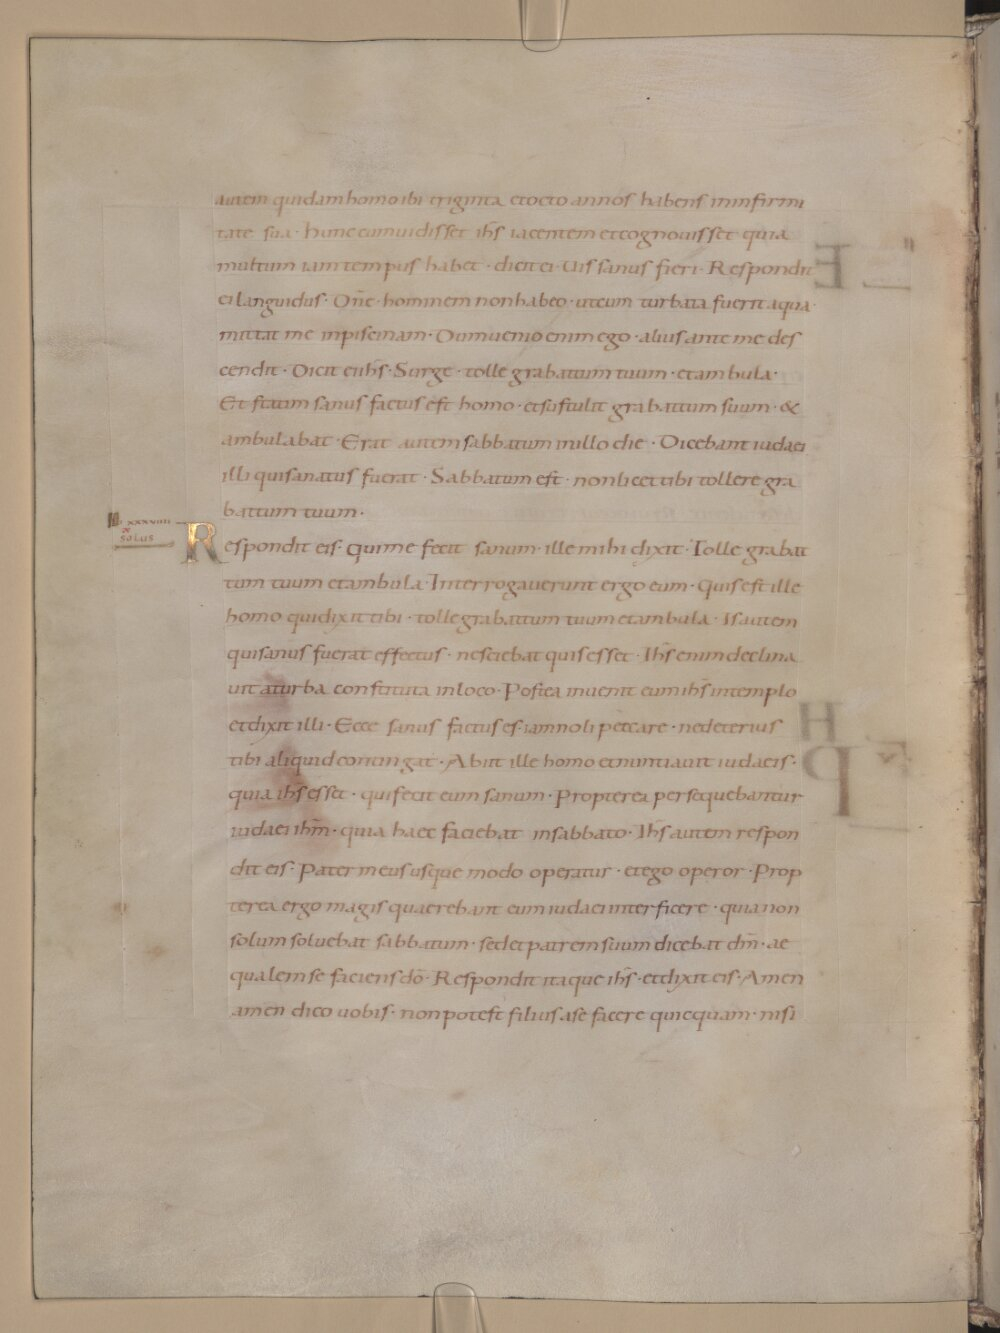 autem quidam homo ibi triginta et octo annos habens in infirmi
tate sua · hunc cum uidisset ihs iacentem et cognouisset quia
multum iam tempus habet · dicit ei · Uis sanus fieri · Respondit
ei languidus · Dñe · hominem non habeo · ut cum turbata fuerit aqua ·
mittat me in piscinam · Dum uenio enim ego · alius ante me des
cendit · Dicit ei ihs · Surge · tolle grabattum tuum · et ambula ·
Et statim sanus factus est homo · et sustulit grabattum suum · &
ambulabat · Erat autem sabbatum in illo die · Dicebant iudaei
illi qui sanatus fuerat · Sabbatum est · non licet tibi tollere gra
battum tuum ·
xxxviiii
solus
Respondit eis · qui me fecit sanum · ille mihi dixit · Tolle grabat
tum tuum et ambula · Interrogauerunt ergo eum · Quis est ille
homo qui dixit tibi · tolle grabattum tuum et ambula · Is autem
qui sanus fuerat effectus · nesciebat quis esset · Ihs enim declina
uit a turba constituta in loco · Postea inuenit eum ihs in templo
et dixit illi · Ecce sanus factus es · iam noli peccare · ne deterius
tibi aliquid contingat · Abiit ille homo et nuntiauit iudaeis ·
quia ihs esset · qui fecit eum sanum · Propterea persequebantur
iudaei ihm · quia haec faciebat in sabbato · Ihs autem respon
dit eis · Pater meus usque modo operatur · et ego operor · Prop
terea ergo magis quaerebant eum iudaei interficere · quia non
solum soluebat sabbatum · sed et patrem suum dicebat dm̄ · ae
qualem se faciens dō · Respondit itaque ihs · et dixit eis · Amen
amen dico uobis · non potest filius a se facere quicquam · nisi